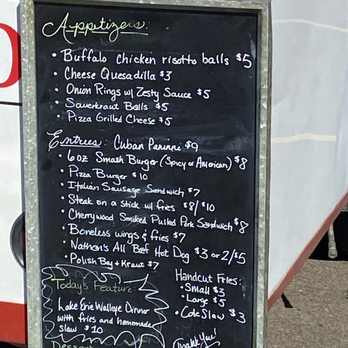 Appetizers:
• Buffalo chicken risotto balls $5
• Cheese Quesadilla $3
• Onion Rings w/ Zesty Sauce $5
• Sauerkraut Balls $5
• Pizza Grilled Cheese $5
Entrees: Cuban Panini $9
• 6oz Smash Burger (Spicy or American) $8
• Pizza Burger $10
• Italian Sausage Sandwich $7
• Steak on a stick w/ fries $8/$10
• Cherrywood Smoked Pulled Pork Sandwich $8
• Boneless wings & fries $7
• Nathan's All Beef Hot Dog $3 or 2/$5
• Polish Boy + Kraut $7
Today's Feature
Lake Erie Walleye Dinner
with fries and homemade
slaw $10
Handcut Fries:
• Small $3
• Large $5
• Cole Slaw $3
Thank You!
Desserts